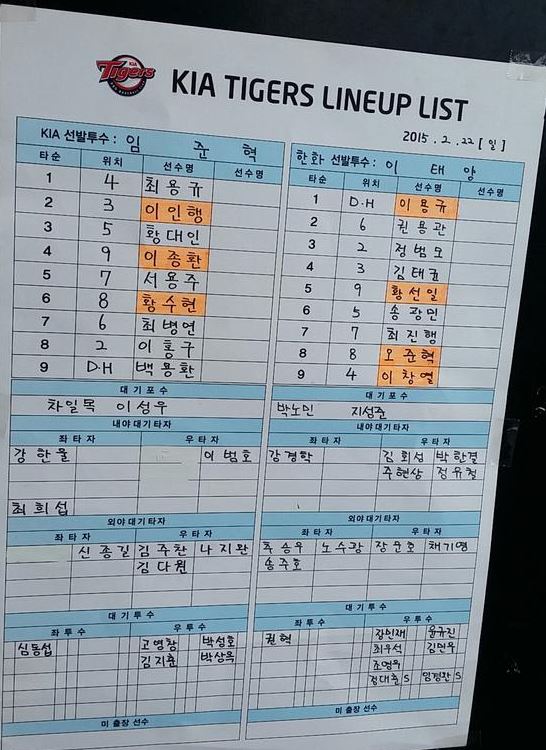 KIA Tigers
KIA TIGERS LINEUP LIST
2015 . 2 . 22 [ 일 ]
KIA 선발투수 : 임 준 혁
타순 위치 선수명 선수명
1 4 최용규
2 3 이인행
3 5 황대인
4 9 이종환
5 7 서용주
6 8 황수현
7 6 최병연
8 2 이홍구
9 D.H 백용환
대기포수
차일목 이성우
내야대기타자
좌타자 우타자
강한울 이범호
최희섭
외야대기타자
좌타자 우타자
신종길 김주찬 나지완
김다원
대기투수
좌투수 우투수
심동섭 고영창 박성호
김지훈 박상옥
미출장선수
한화 선발투수 : 이 태 양
타순 위치 선수명 선수명
1 D.H 이용규
2 6 권용관
3 2 정범모
4 3 김태균
5 9 황선일
6 5 송광민
7 7 최진행
8 8 오준혁
9 4 이창열
대기포수
박노민 지성준
내야대기타자
좌타자 우타자
강경학 김회성 박한결
주현상 정유철
외야대기타자
좌타자 우타자
추승우 노수광 장운호 채기영
송주호
대기투수
좌투수 우투수
권혁 윤규진
최우석 김민우
조영우
정대훈 S 임경완 S
미출장선수